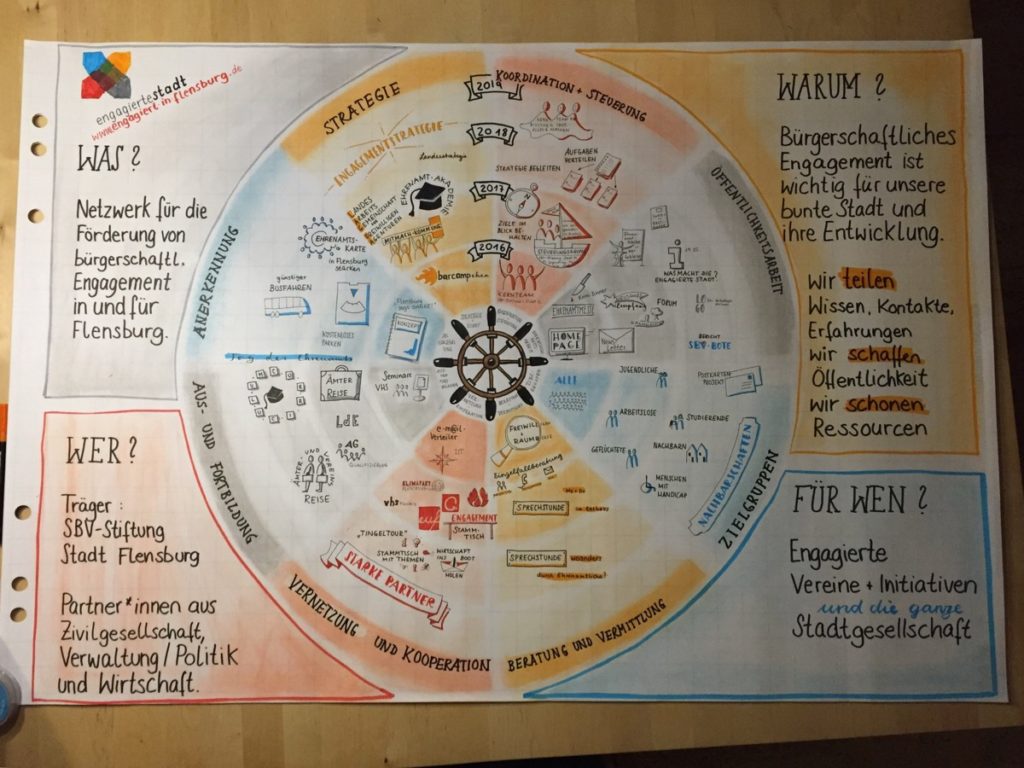 engagiertestadt
www.engagiert in flensburg.de
WAS?
Netzwerk für die
Förderung von
bürgerschaftl.
Engagement
in und für
Flensburg.
WARUM?
Bürgerschaftliches
Engagement ist
wichtig für unsere
bunte Stadt und
ihre Entwicklung.
wir teilen
Wissen, Kontakte,
Erfahrungen
wir schaffen
Öffentlichkeit
wir schonen
Ressourcen
WER?
Träger:
SBV-Stiftung
Stadt Flensburg
Partner*innen aus
Zivilgesellschaft,
Verwaltung/Politik
und Wirtschaft.
FÜR WEN?
Engagierte
Vereine + Initiativen
und die ganze
Stadtgesellschaft
STRATEGIE
2019
2018
2017
2016
ENGAGEMENTSTRATEGIE
Landesstrategie
EHRENAMT-AKADEMIE
LANDES
ARBEITS
GEMEINSCHAFT
MITMACH-KOMMUNE
barcampchen
KOORDINATION + STEUERUNG
STRATEGIE BEGLEITEN
AUFGABEN
VERTEILEN
ZIELE IM
BLICK BE-
HALTEN
KERNTEAM
ÖFFENTLICHKEITSARBEIT
WAS MACHT DIE?
ENGAGIERTE STADT?
FORUM
EHRENAMTMESSE
HOME
PAGE
News
Letter
BERICHT
SBV-BOTE
POSTKARTEN
PROJEKT
ZIELGRUPPEN
ALLE
JUGENDLICHE
ARBEITSLOSE
STUDIERENDE
GEFLÜCHTETE
NACHBARN
MENSCHEN
MIT
HANDICAP
NACHBARSCHAFTEN
BERATUNG UND VERMITTLUNG
FREIWILL
RÄUME
Einzelfallberatung
SPRECHSTUNDE
SPRECHSTUNDE woanders
durch Ehrenamtliche!
VERNETZUNG UND KOOPERATION
e-mail-
Verteiler
KLIMAPAKT
vhs
ENGAGEMENT
STAMM-
TISCH
"TINGELTOUR"
STAMMTISCH
MIT THEMEN
WIRTSCHAFT
INS BOOT
HOLEN
STARKE PARTNER
AUS- UND FORTBILDUNG
Seminare
VHS
ÄMTER
REISE
LdE
AG
QUALIFIZIERUNG
ÄMTER- UND VEREIN
REISE
ANERKENNUNG
EHRENAMTS-
KARTE
in Flensburg
stärken
günstiger
BUSFAHREN
KOSTENLOSES
PARKEN
KONZEPT
Tag des Ehrenamts